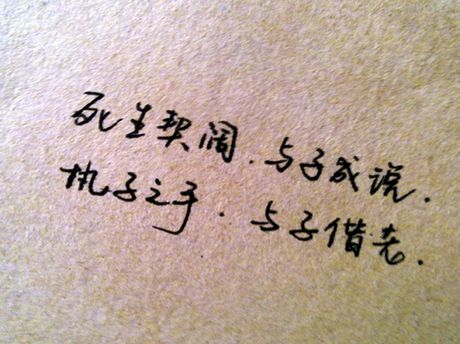 死生契阔.与子成说.
执子之手.与子借老.